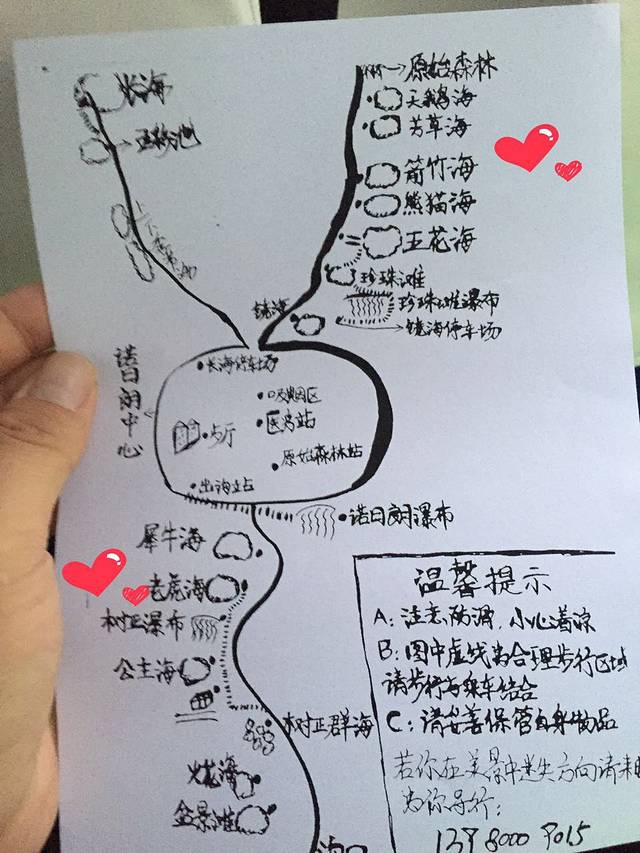 长海
原始森林
天鹅海
芳草海
五彩池
箭竹海
熊猫海
五花海
珍珠滩
镜海
珍珠滩瀑布
镜海停车场
长海停车场
诺日朗中心
吸烟区
医务站
原始森林站
出沟站
诺日朗瀑布
犀牛海
老虎海
树正瀑布
公主海
树正群海
火花海
盆景滩
沟口
温馨提示
A：注意防滑，小心着凉
B：图中虚线为合理步行区域
请步行与乘车结合
C：请妥善保管自身物品
若你在美景中迷失方向请来电
为你导行：
139 8000 9015